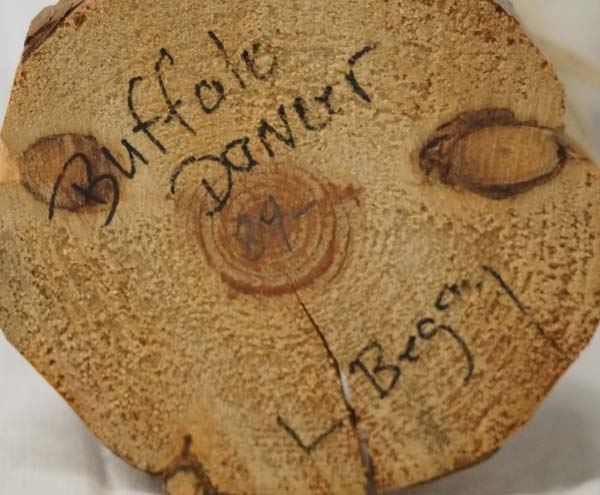 Buffalo
Dancer
89-
L Begay